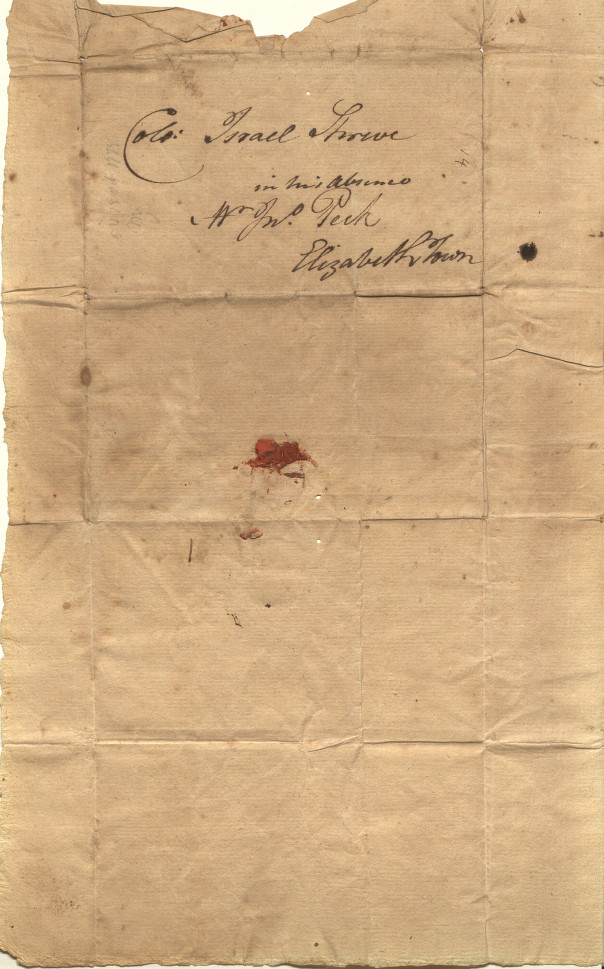 Colo: Israel Shreve
in his Absence
Mr Jno. Peck
Elizabeth Town
14